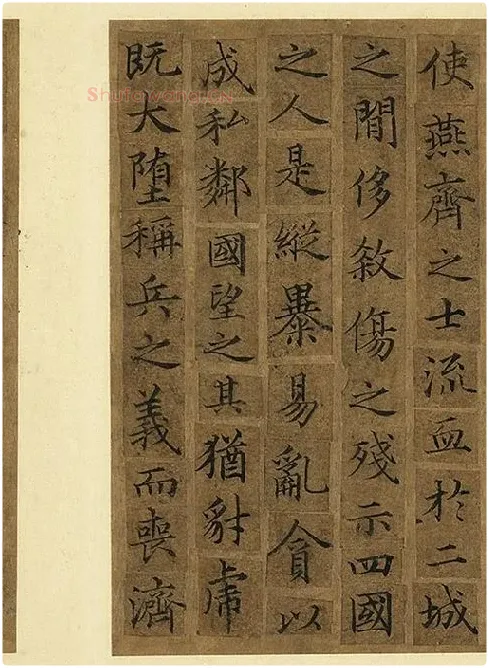 使燕齊之士流血於二城
之閒侈敘傷之殘示四國
之人是縱暴易亂貪以
成私鄰國望之其猶豺虎
既大墮稱兵之義而喪濟